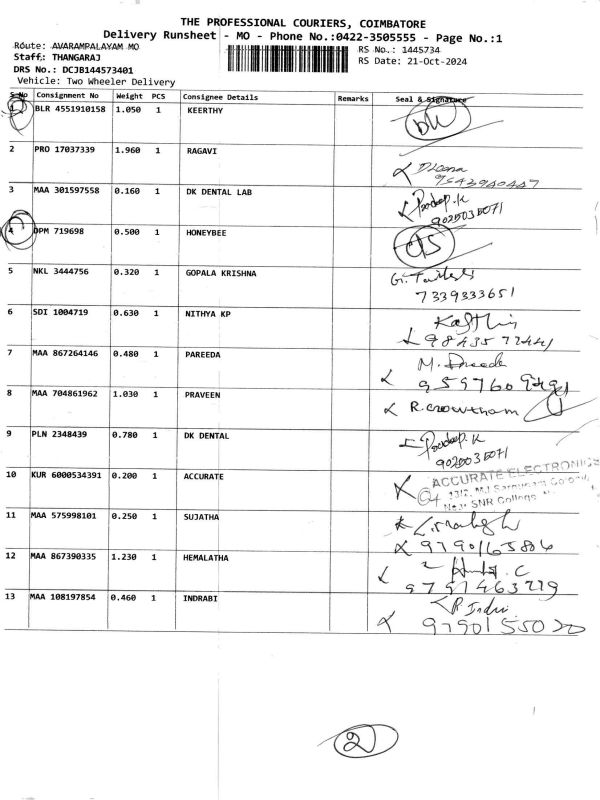 THE PROFESSIONAL COURIERS, COIMBATORE
Delivery Runsheet - MO - Phone No.:0422-3505555 - Page No.:1
Route: AVARAMPALAYAM MO RS No.: 1445734
Staff: THANGARAJ RS Date: 21-Oct-2024
DRS No.: DCJB144573401
Vehicle: Two Wheeler Delivery
S No Consignment No Weight PCS Consignee Details Remarks Seal & Signature
1 BLR 4551910158 1.050 1 KEERTHY
2 PRO 17037339 1.960 1 RAGAVI
3 MAA 301597558 0.160 1 DK DENTAL LAB Pradeep.K
9020035071
4 DPM 719698 0.500 1 HONEYBEE
5 NKL 3444756 0.320 1 GOPALA KRISHNA
7339333651
6 SDI 1004719 0.630 1 NITHYA KP
7 MAA 867264146 0.480 1 PAREEDA
8 MAA 704861962 1.030 1 PRAVEEN
R. Crowtham
9 PLN 2348439 0.780 1 DK DENTAL Pradeep.K
9020035071
10 KUR 6000534391 0.200 1 ACCURATE ACCURATE ELECTRONICS
SNR College
11 MAA 575998101 0.250 1 SUJATHA
12 MAA 867390335 1.230 1 HEMALATHA
13 MAA 108197854 0.460 1 INDRABI
2